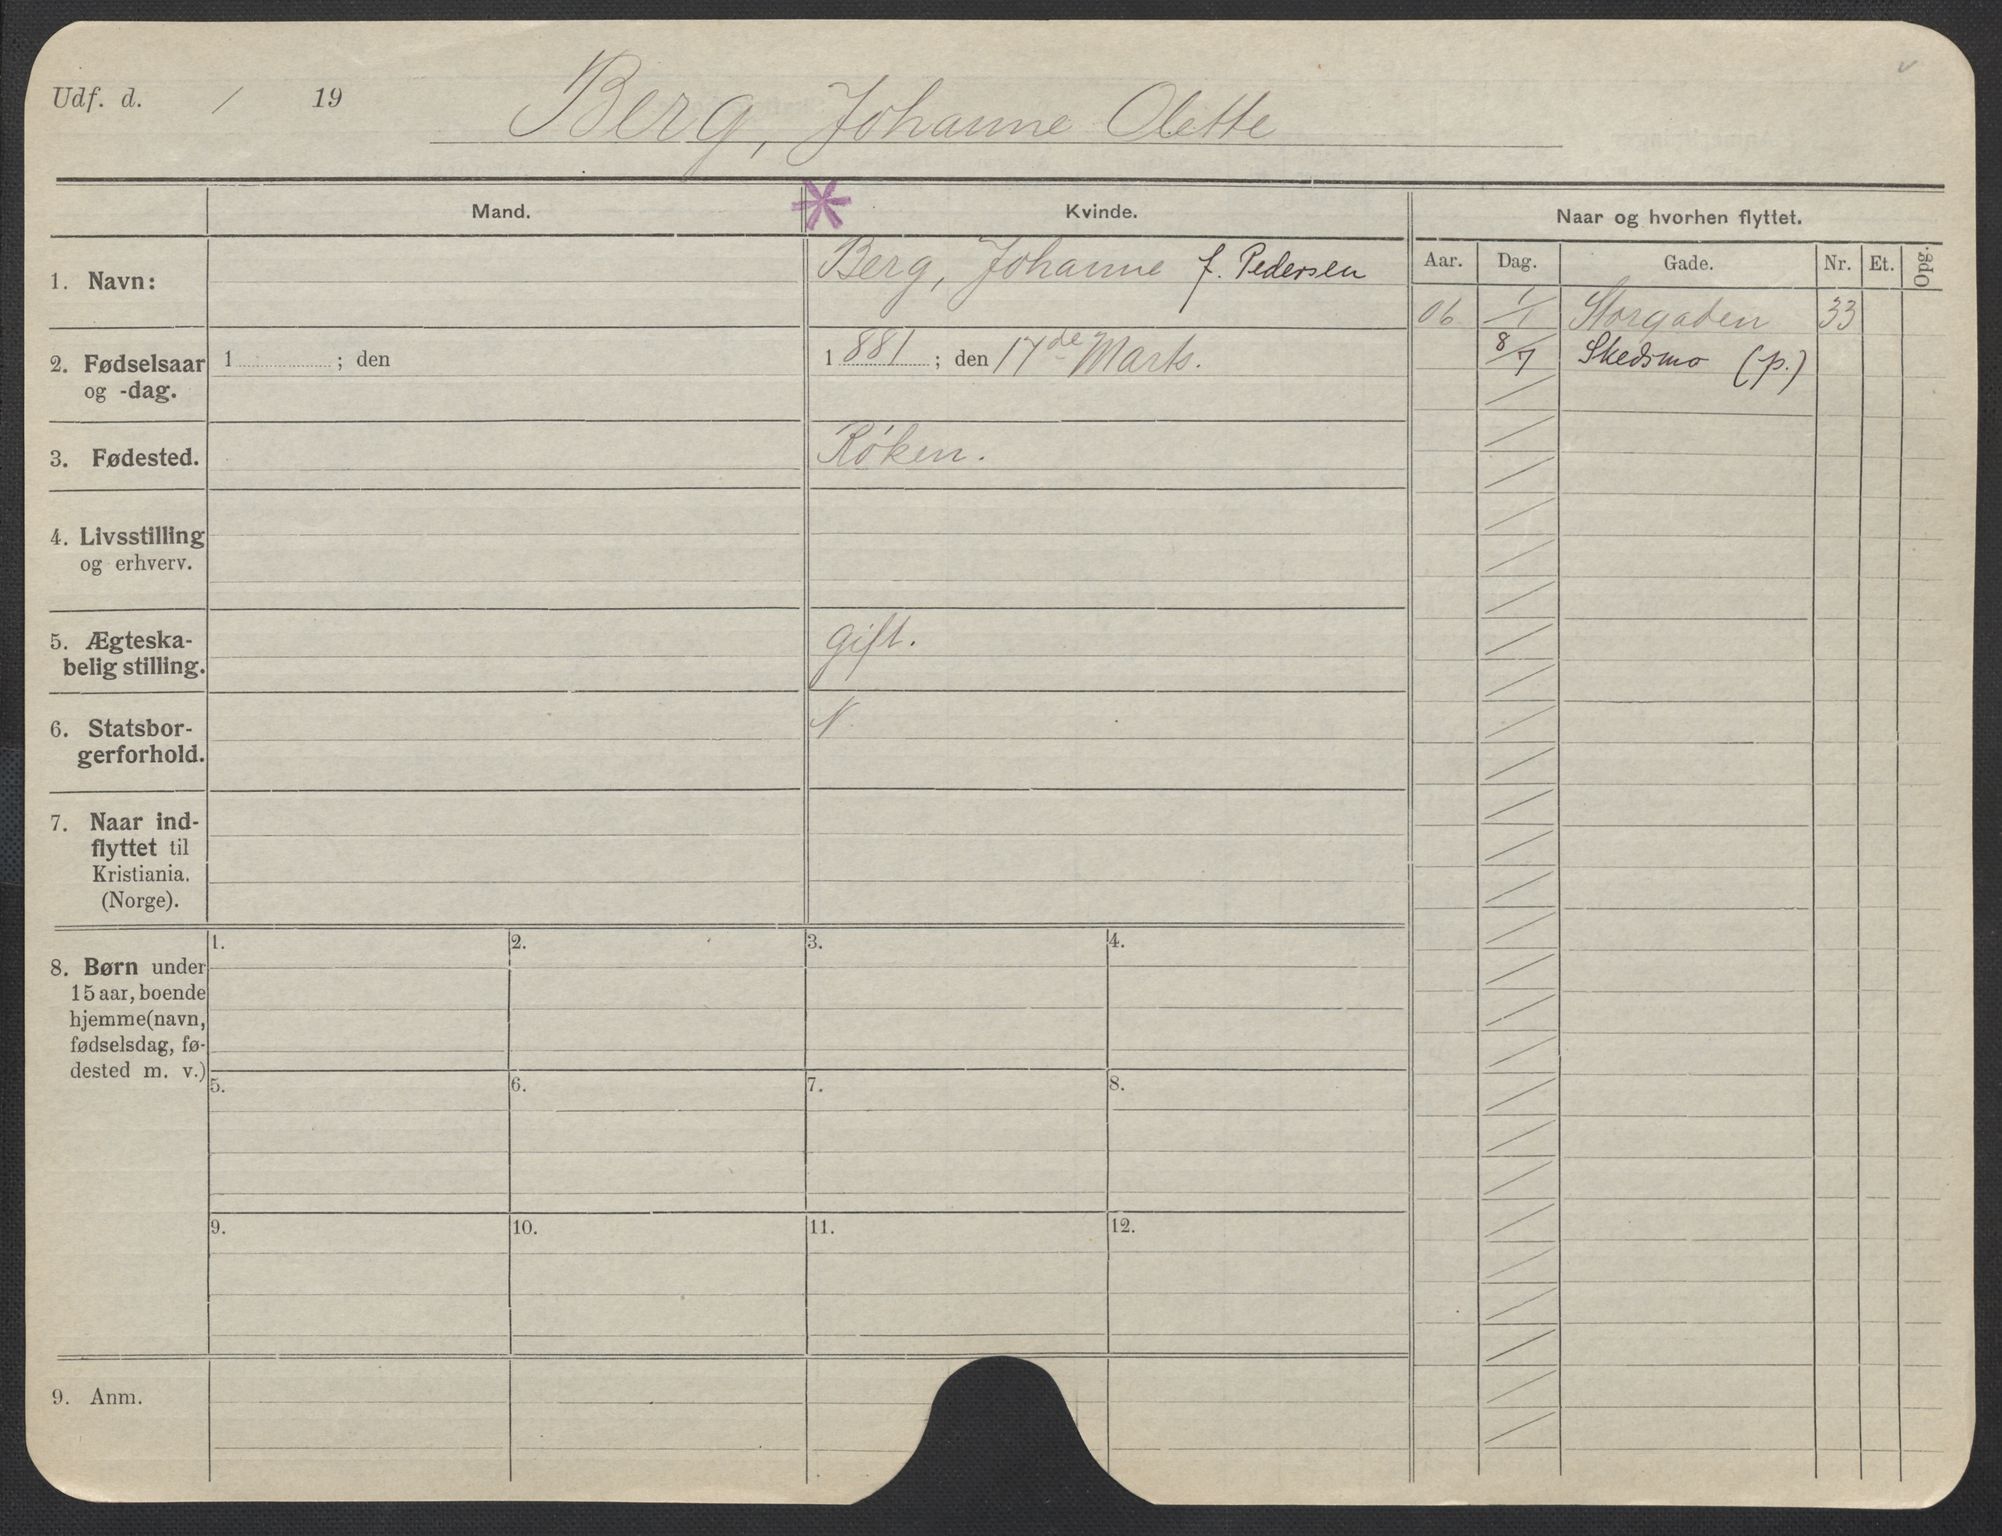 Udf. d. / 19
Berg, Johanne Olette
Mand.
Kvinde.
Naar og hvorhen flyttet.
Aar. Dag. Gade. Nr. Et. Opg.
1. Navn:
Berg, Johanne f. Pedersen
06 1/1 Storgaden 33
8/7 Skedsmo (p.)
2. Fødselsaar
og -dag.
1 ; den
1881 ; den 17de Marts.
3. Fødested.
Røken.
4. Livsstilling
og erhverv.
5. Ægteska-
belig stilling.
gift.
6. Statsbor-
gerforhold.
N
7. Naar ind-
flyttet til
Kristiania.
(Norge).
8. Børn under
15 aar, boende
hjemme (navn,
fødselsdag, fø-
dested m. v.)
1. 2. 3. 4.
5. 6. 7. 8.
9. 10. 11. 12.
9. Anm.